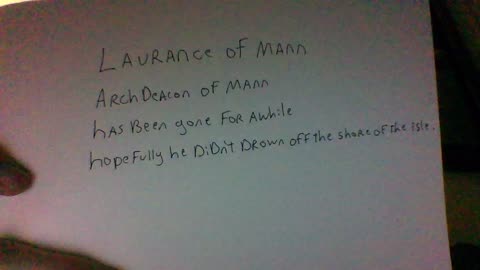 Laurance of Mann
ArchDeacon of Mann
has Been gone For Awhile
hopefully he DiDn't Drown off the shore of the isle.